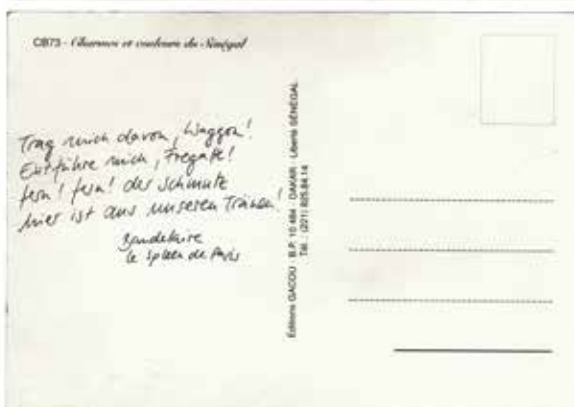 CB73 - Charmes et couleurs du Sénégal
Trag mich davon, Waggon!
Entführe mich, Fregatte!
fern! fern! der Schmutz
hier ist aus unseren Tränen!
Baudelaire
le Spleen de Paris
Editions GACOU - B.P. 10 484 - DAKAR - Liberté SÉNÉGAL
Tél. : (221) 825.84.14